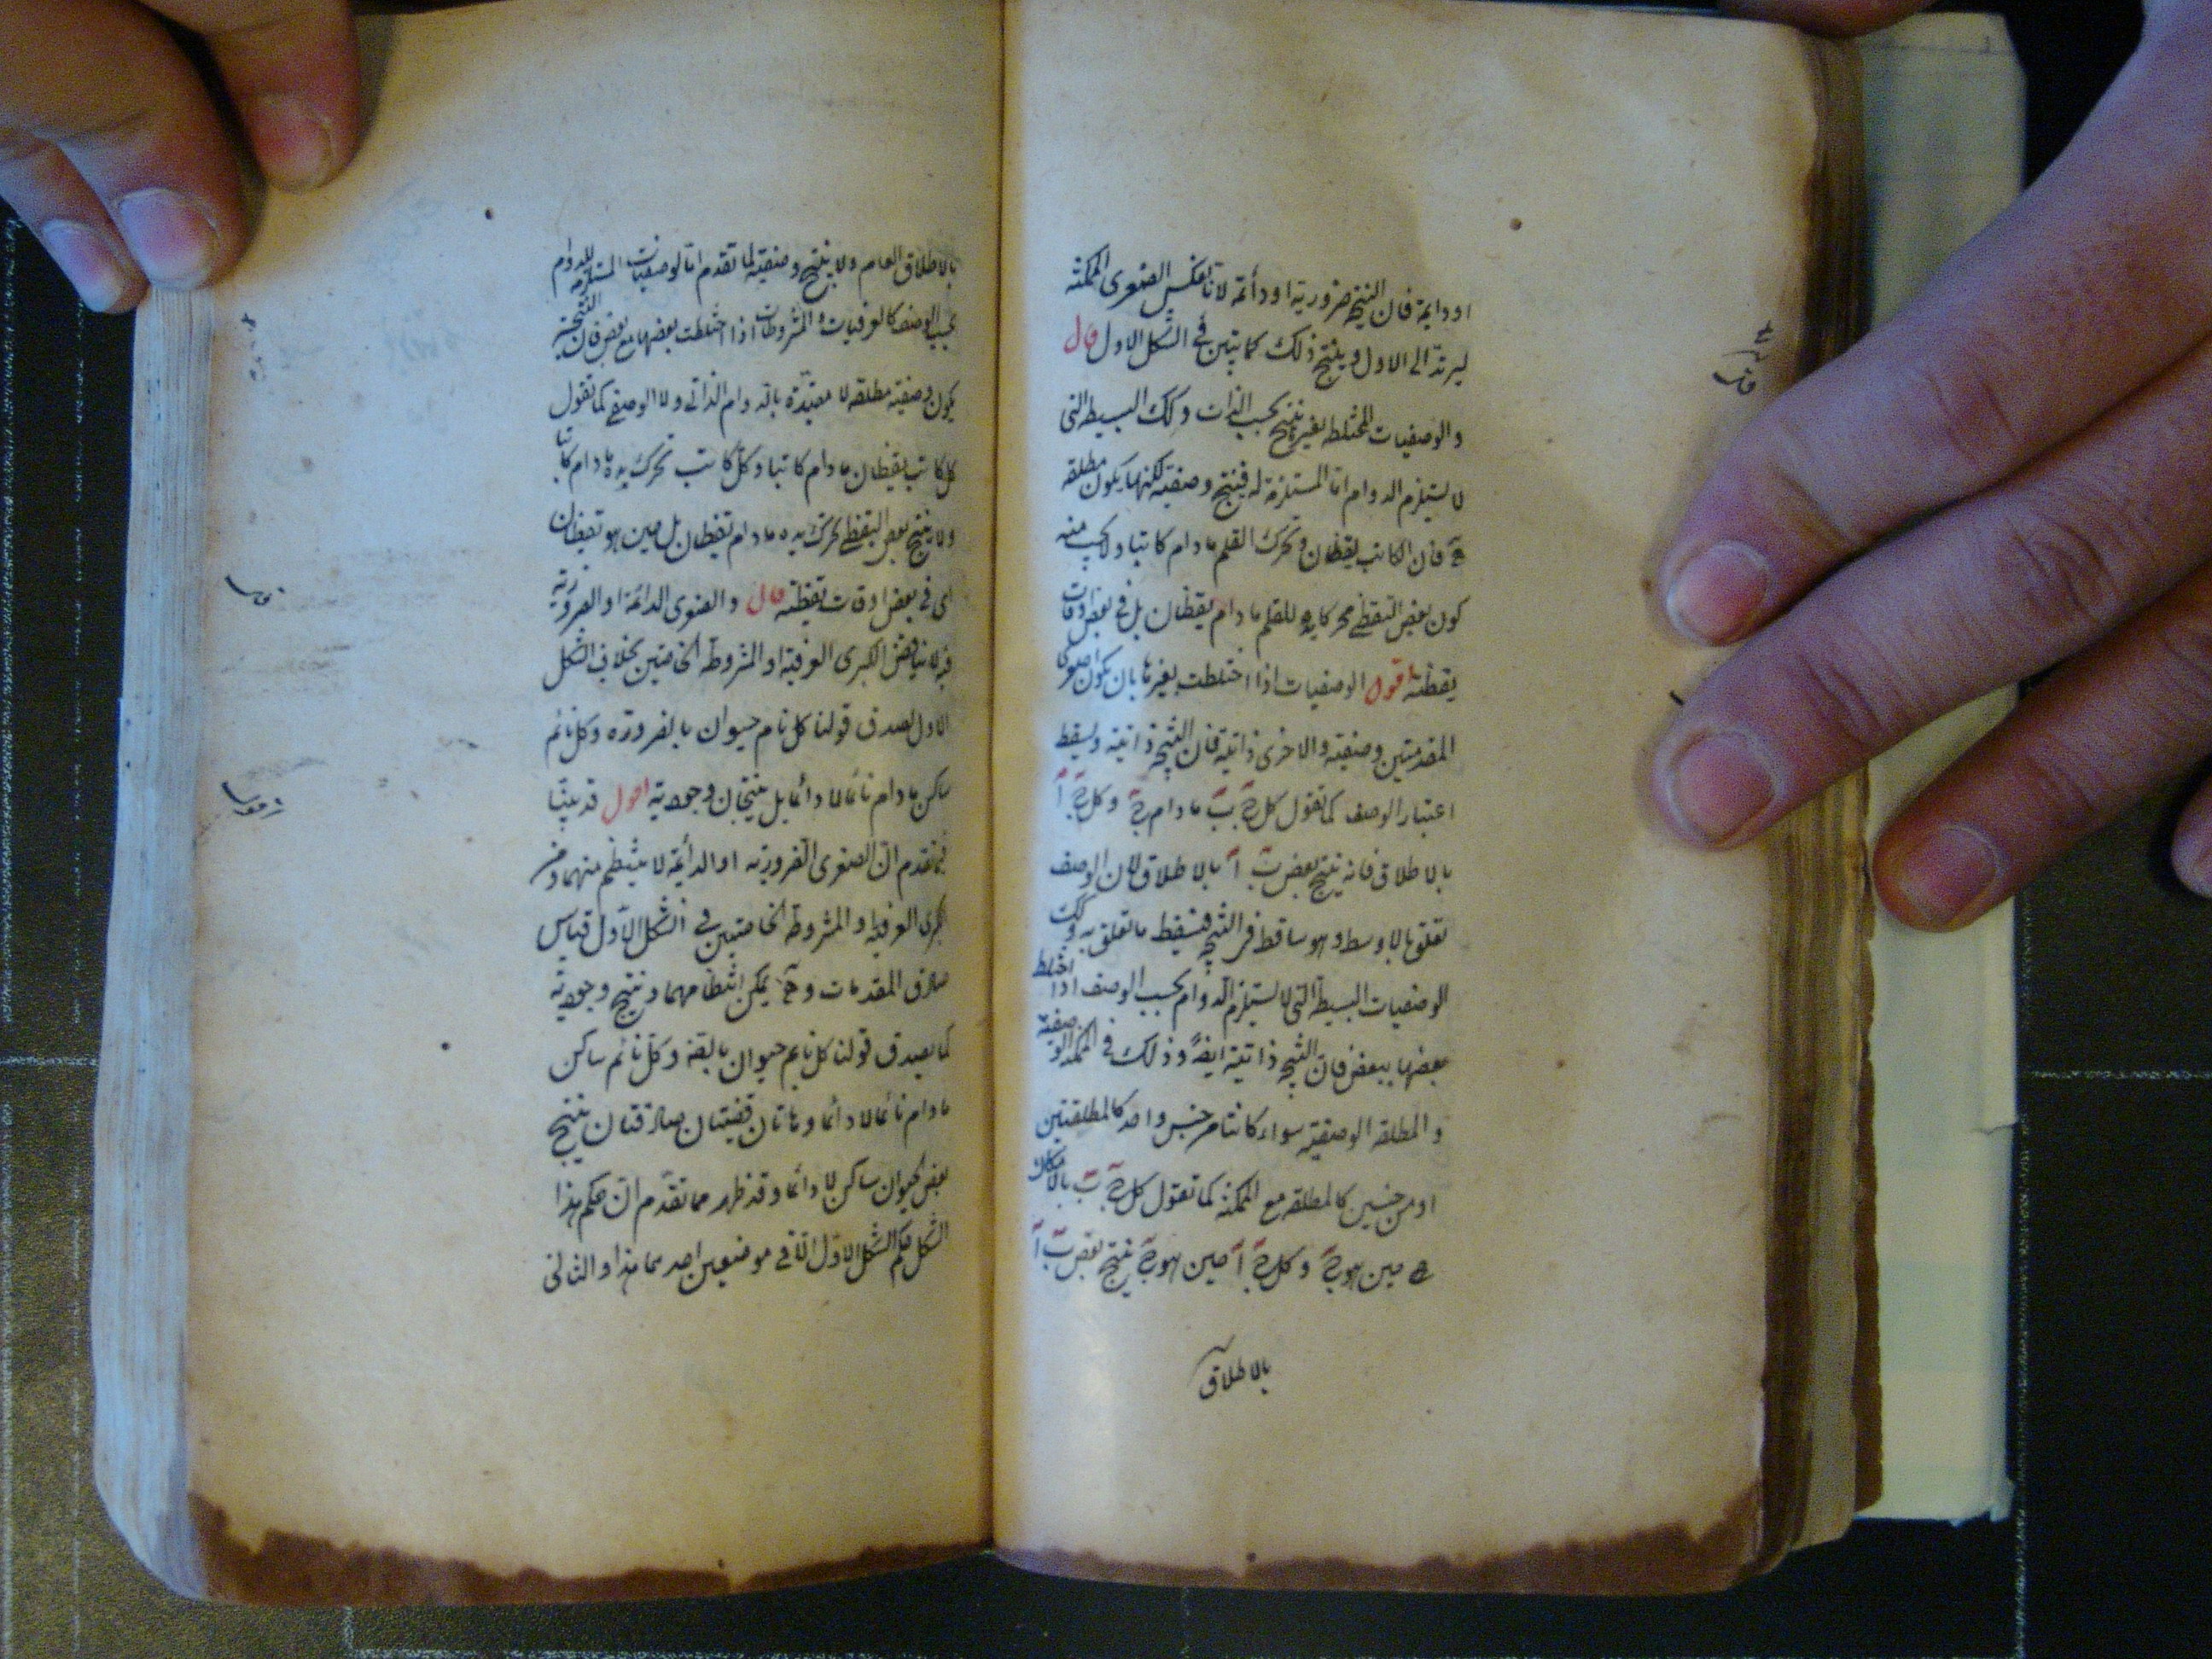 او دايمة فان النتيجة ضرورية او دائمة لانا نعكس الصغرى الممكنة
ليرتد الى الاول وينتج ذلك كما تبين في الشكل الاول قال
والوصفيات المختلطة بغيرها ينتج بحسب الذات وكك البسيطة التى
لا يستلزم الدوام اما المستلزمة له فينتج وصفية لكنها يكون مطلقة
فان الكاتب يقظان وتحرك القلم ما دام كاتبا ولا يجب منه
كون بعض اليقظى محركا للقلم ما دام يقظان بل في بعض اوقات
يقظته اقول الوصفيات اذا اختلطت بغيرها بان يكون احدى
المقدمتين وصفية والاخرى ذاتية فان النتيجة ذاتية ويسقط
اعتبار الوصف كما تقول كل ج ب ما دام ج وكل ج أ
بالاطلاق فانه ينتج بعض ب أ بالاطلاق لان الوصف
تعلق بالاوسط وهو ساقط في النتيجة فيسقط ما تعلق به وكك
الوصفيات البسيطة التى لا يستلزم الدوام بحسب الوصف اذا اختلط
بعضها ببعض فان النتيجة ذاتية ايضا وذلك في الممكنة الوصفية
والمطلقة الوصفية سواء كانتا من جنس واحد كالمطلقتين
او من جنسين كالمطلقة مع الممكنة كما تقول كل ج ب بالامكان
حين هو ج وكل ج أ حين هو ج ينتج بعض ب أ
بالاطلاق
بالاطلاق العام ولا ينتج وصفية لما تقدم اما الوصفيات المستلزمة للدوام
بحسب الوصف كالعرفيات والمشروطات اذا اختلطت بعضها مع بعض فان النتيجة
يكون وصفية مطلقة لا مقيدة بالدوام الذاتى ولا الوصفى كما تقول
كل كاتب يقظان ما دام كاتبا وكل كاتب تحرك يده ما دام كاتبا
ولا ينتج بعض اليقظى تحرك يده ما دام يقظان بل حين هو يقظان
اى في بعض اوقات يقظته قال والصغرى الدائمة او الضرورية
فيه لا يناقض الكبرى العرفية او المشروطة الخاصتين بخلاف الشكل
الاول لصدق قولنا كل نائم حيوان بالضرورة وكل نائم
ساكن ما دام نائما لا دائما بل ينتجان وجودية اقول قد بينا
فيما تقدم ان الصغرى الضرورية او الدائمة لا ينتظم منهما ومن
كبرى العرفية او المشروطة الخاصتين في الشكل الاول قياس
صادق المقدمات و يمكن انتظامهما وينتج وجودية
كما يصدق قولنا كل نايم حيوان بالضرورة وكل نائم ساكن
ما دام نائما لا دائما وهاتان قضيتان صادقتان ينتج
بعض الحيوان ساكن لا دائما وقد ظهر مما تقدم ان حكم هذا
الشكل حكم الشكل الاول الا في موضعين احدهما هذا والثانى